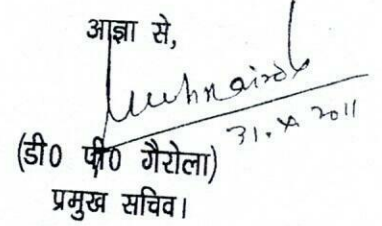 आज्ञा से,
31.X 2011
(डी0 पी0 गैरोला)
प्रमुख सचिव।